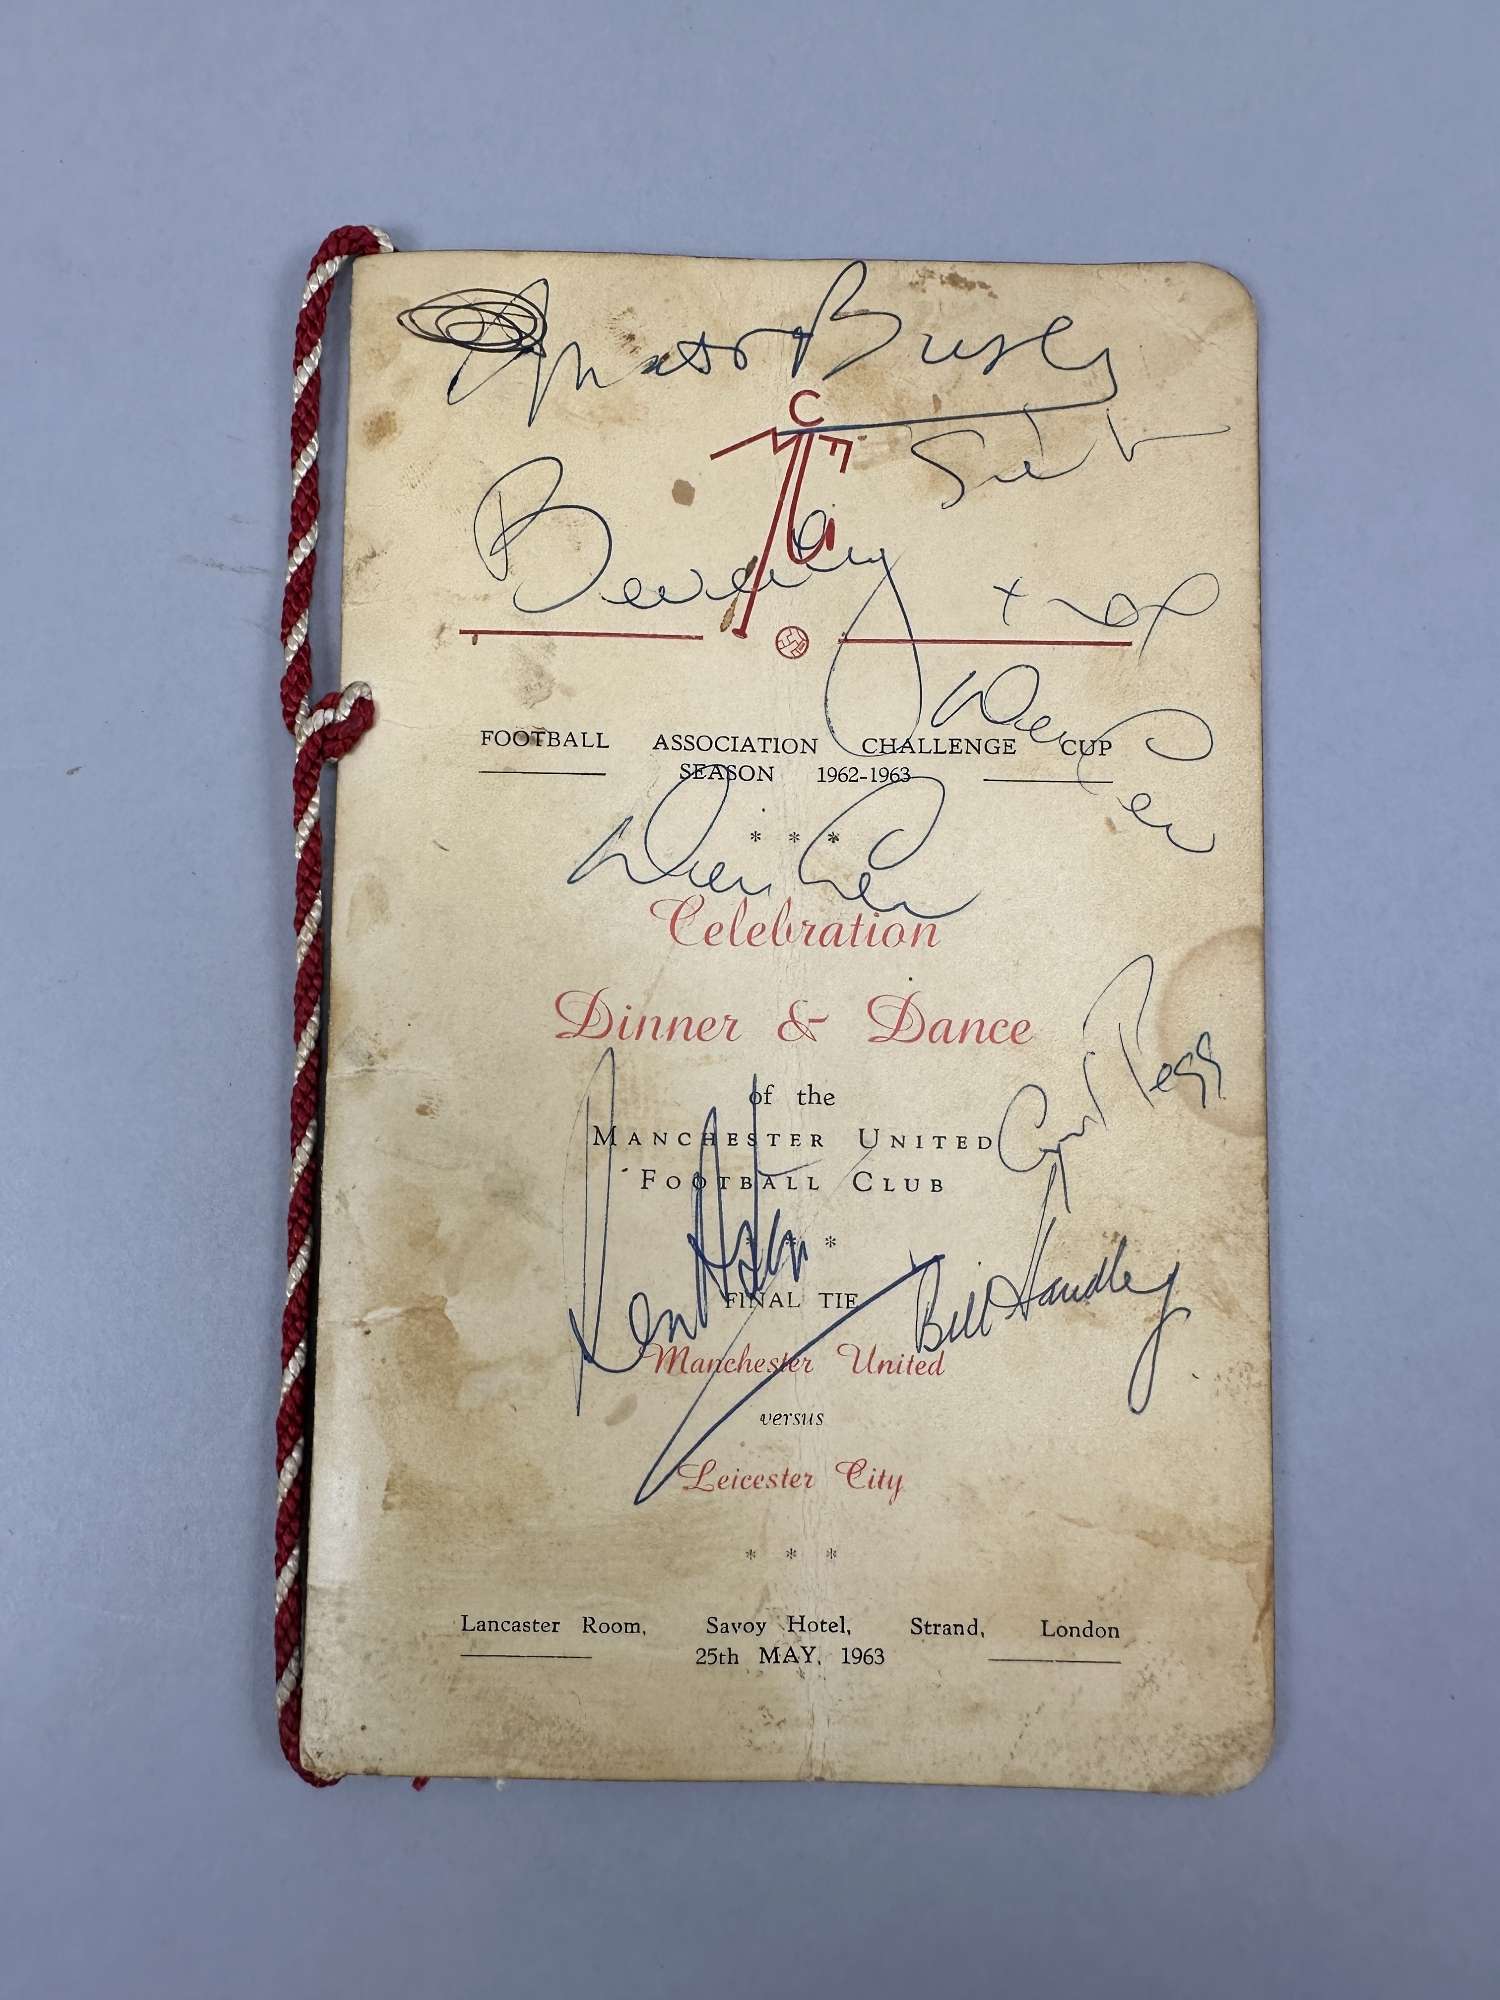 Matt Busby
M U F C
Beverley
FOOTBALL ASSOCIATION CHALLENGE CUP
SEASON 1962-1963
* * *
Celebration
Dinner & Dance
of the
MANCHESTER UNITED
FOOTBALL CLUB
Pegg
* * *
Bill Handley
FINAL TIE
Manchester United
versus
Leicester City
* * *
Lancaster Room, Savoy Hotel, Strand, London
25th MAY, 1963